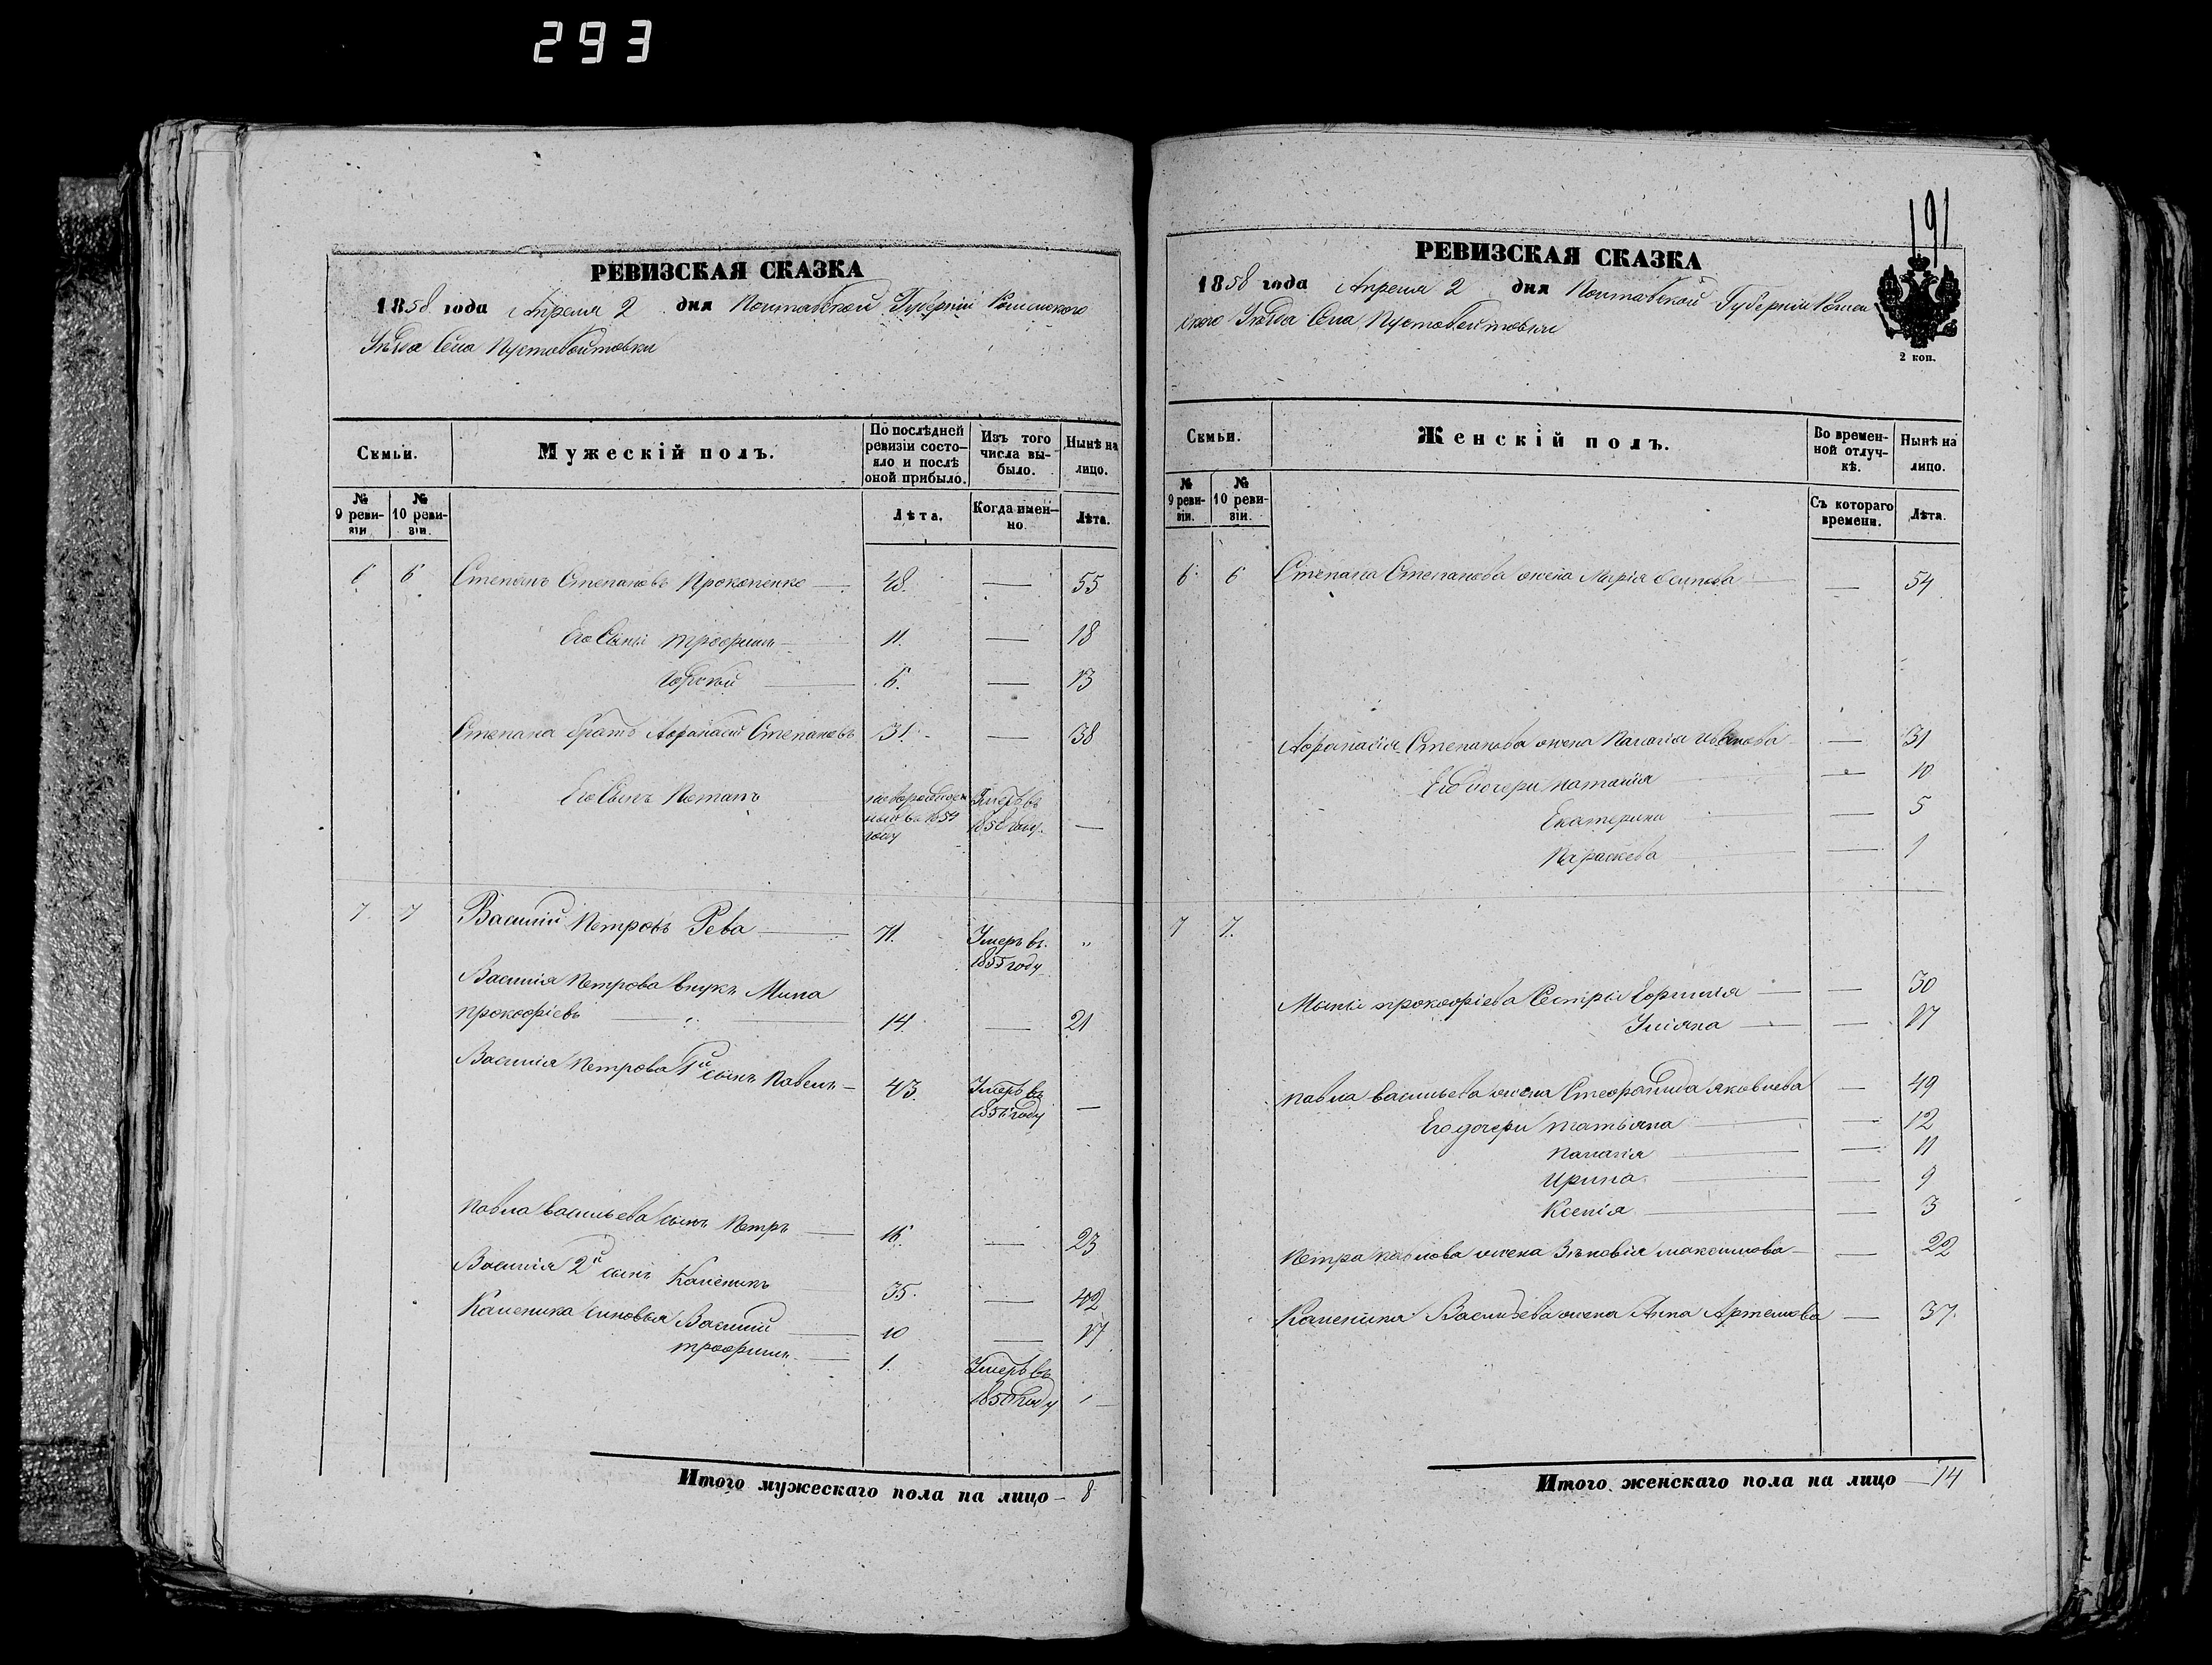 293
РЕВИЗСКАЯ СКАЗКА
1858 года Апреля 2 дня Полтавской Губерніи Роменского
Уѣзда Села Пустовойтовки
Семьи.
Мужескій полъ.
По послѣдней ревизіи состояло и послѣ оной прибыло.
Изъ того числа выбыло.
Нынѣ на лицо.
№ 9 ревизіи
№ 10 ревизіи.
Лѣта.
Когда именно
Лѣта.
6 6 Степанъ Степановъ Прокопенко — 48. — 55
Его Сыны Трофимъ — 11. — 18
— 6. — 13
Степана братъ Афанасій Степановъ 31. — 38
Его Сынъ Потапъ новорожденный въ 1854 году Умеръ въ году. —
7. 7 Василій Петровъ Рева — 71. Умеръ въ 1855 году „
Василія Петрова внукъ Мина
Прокофіевъ — 14. — 21
Василія Петрова 1й сынъ Павелъ — 43. Умеръ въ году —
Павла Васильева сынъ Петръ — 16. — 23
Василія 2й сынъ Каленикъ 35. — 42
Каленика сыновья Василий — 10 — 17
Трофимъ — 1. Умеръ въ году —
Итого мужескаго пола на лицо — 8
191
РЕВИЗСКАЯ СКАЗКА
2 коп.
1858 года Апреля 2 дня Полтавской Губерніи Ромен
ского Уѣзда Села Пустовойтовки
Семьи.
Женскій полъ.
Во временной отлучкѣ.
Нынѣ на лицо.
№ 9 ревизіи.
№ 10 ревизіи.
Съ котораго времени.
Лѣта.
6 6 Степана Степанова жена Марія Осипова — 54
Афанасія Степанова жена Палагія Иванова — 31
Его дочери Наталія — 10
Екатерина — 5
Параскева — 1
7 7.
Мины Прокофіева Сестры — 30
Уліяна — 17
Павла Васильева жена Стефанида Яковлева — 49
Его дочери Татьяна — 12
Палагія — 11
Ирина. — 9
Ксенія — 3
Петра Павлова жена Зѣновія Максимова — 22
Каленика Васильева жена Анна Артемова — 37.
Итого женскаго пола на лицо — 14